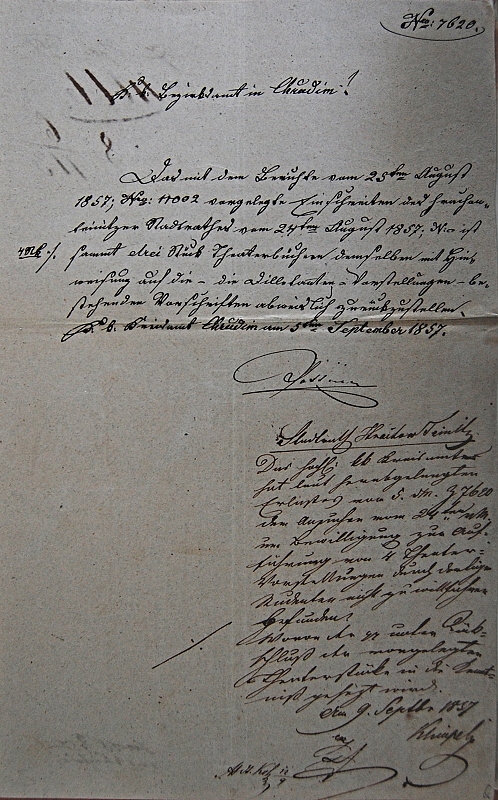 Nro: 7620.
K. k. Bezirksamt in Chrudim!
Das mit dem Berichte vom 25ten August
1857; Nro: 11002 vorgelegte Einschreiten des
Stadtrathes vom 24ten August 1857; No ist
sammt drei Stück Theaterbüchern demselben mit Hin-
weisung auf die – die Dilletanten-Vorstellungen – be-
stehenden Vorschriften abweislich zurückzustellen.
K. k. Kreisamt Chrudim am 5ten September 1857.
Stadtrath
Das hochl: kk Kreisamt
hat laut herabgelangten
Erlaßes vom 5. dM. Z 7620
dem Ansuchen vom 24ten
um Bewilligung zur Auf-
führung von 4 Theater-
Vorstellungen durch dortige
Studenten nicht zu willfahren
befunden.
Wovon der unter Rück-
schluß der vorgelegten
Theaterstücke in die Kennt-
niß gesetzt wird.
Am 9. Septbe 1857